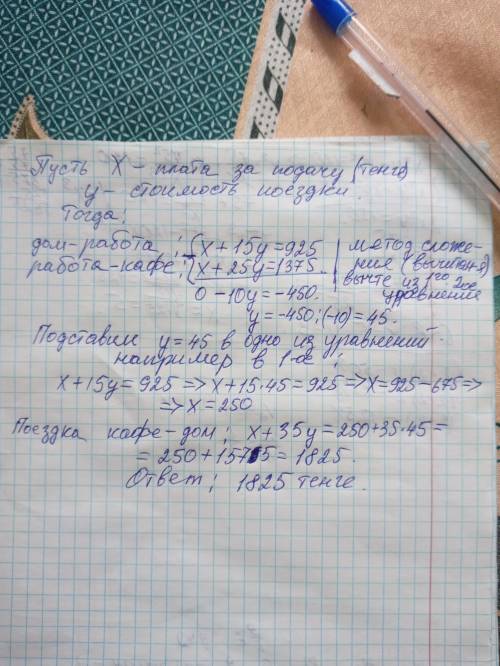 Пусть X – плата за подачу (тенге)
y – стоимость поездки.
Тогда:
дом-работа : { X + 15y = 925 | метод сложе-
работа-кафе : { X + 25y = 1375 | ния (вычитания)
вычте из 1го 2ое
0 – 10y = -450. уравнение
y = -450:(-10) = 45.
Подставим y = 45 в одно из уравнений
например в 1-ое :
X + 15y = 925 => X + 15·45 = 925 => X = 925 – 675 =>
=> X = 250
Поездка кафе-дом : X + 35y = 250 + 35·45 =
= 250 + 1575 = 1825.
Ответ : 1825 тенге.